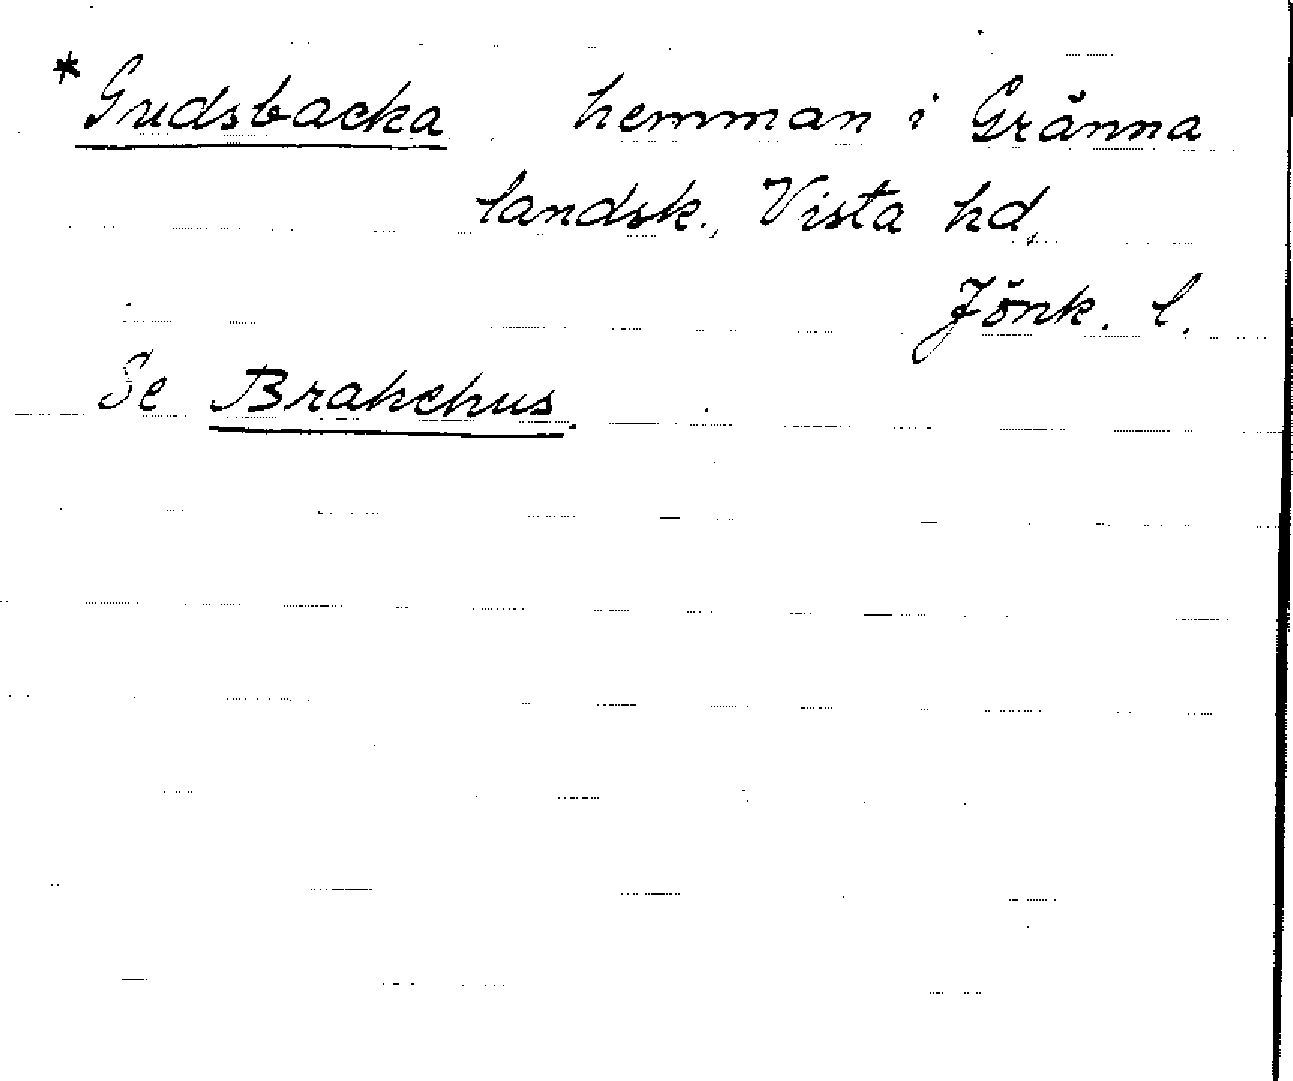 * Gudsbacka hemman i Gränna
landsk., Vista hd,
Jönk. l.
Se Brahehus.